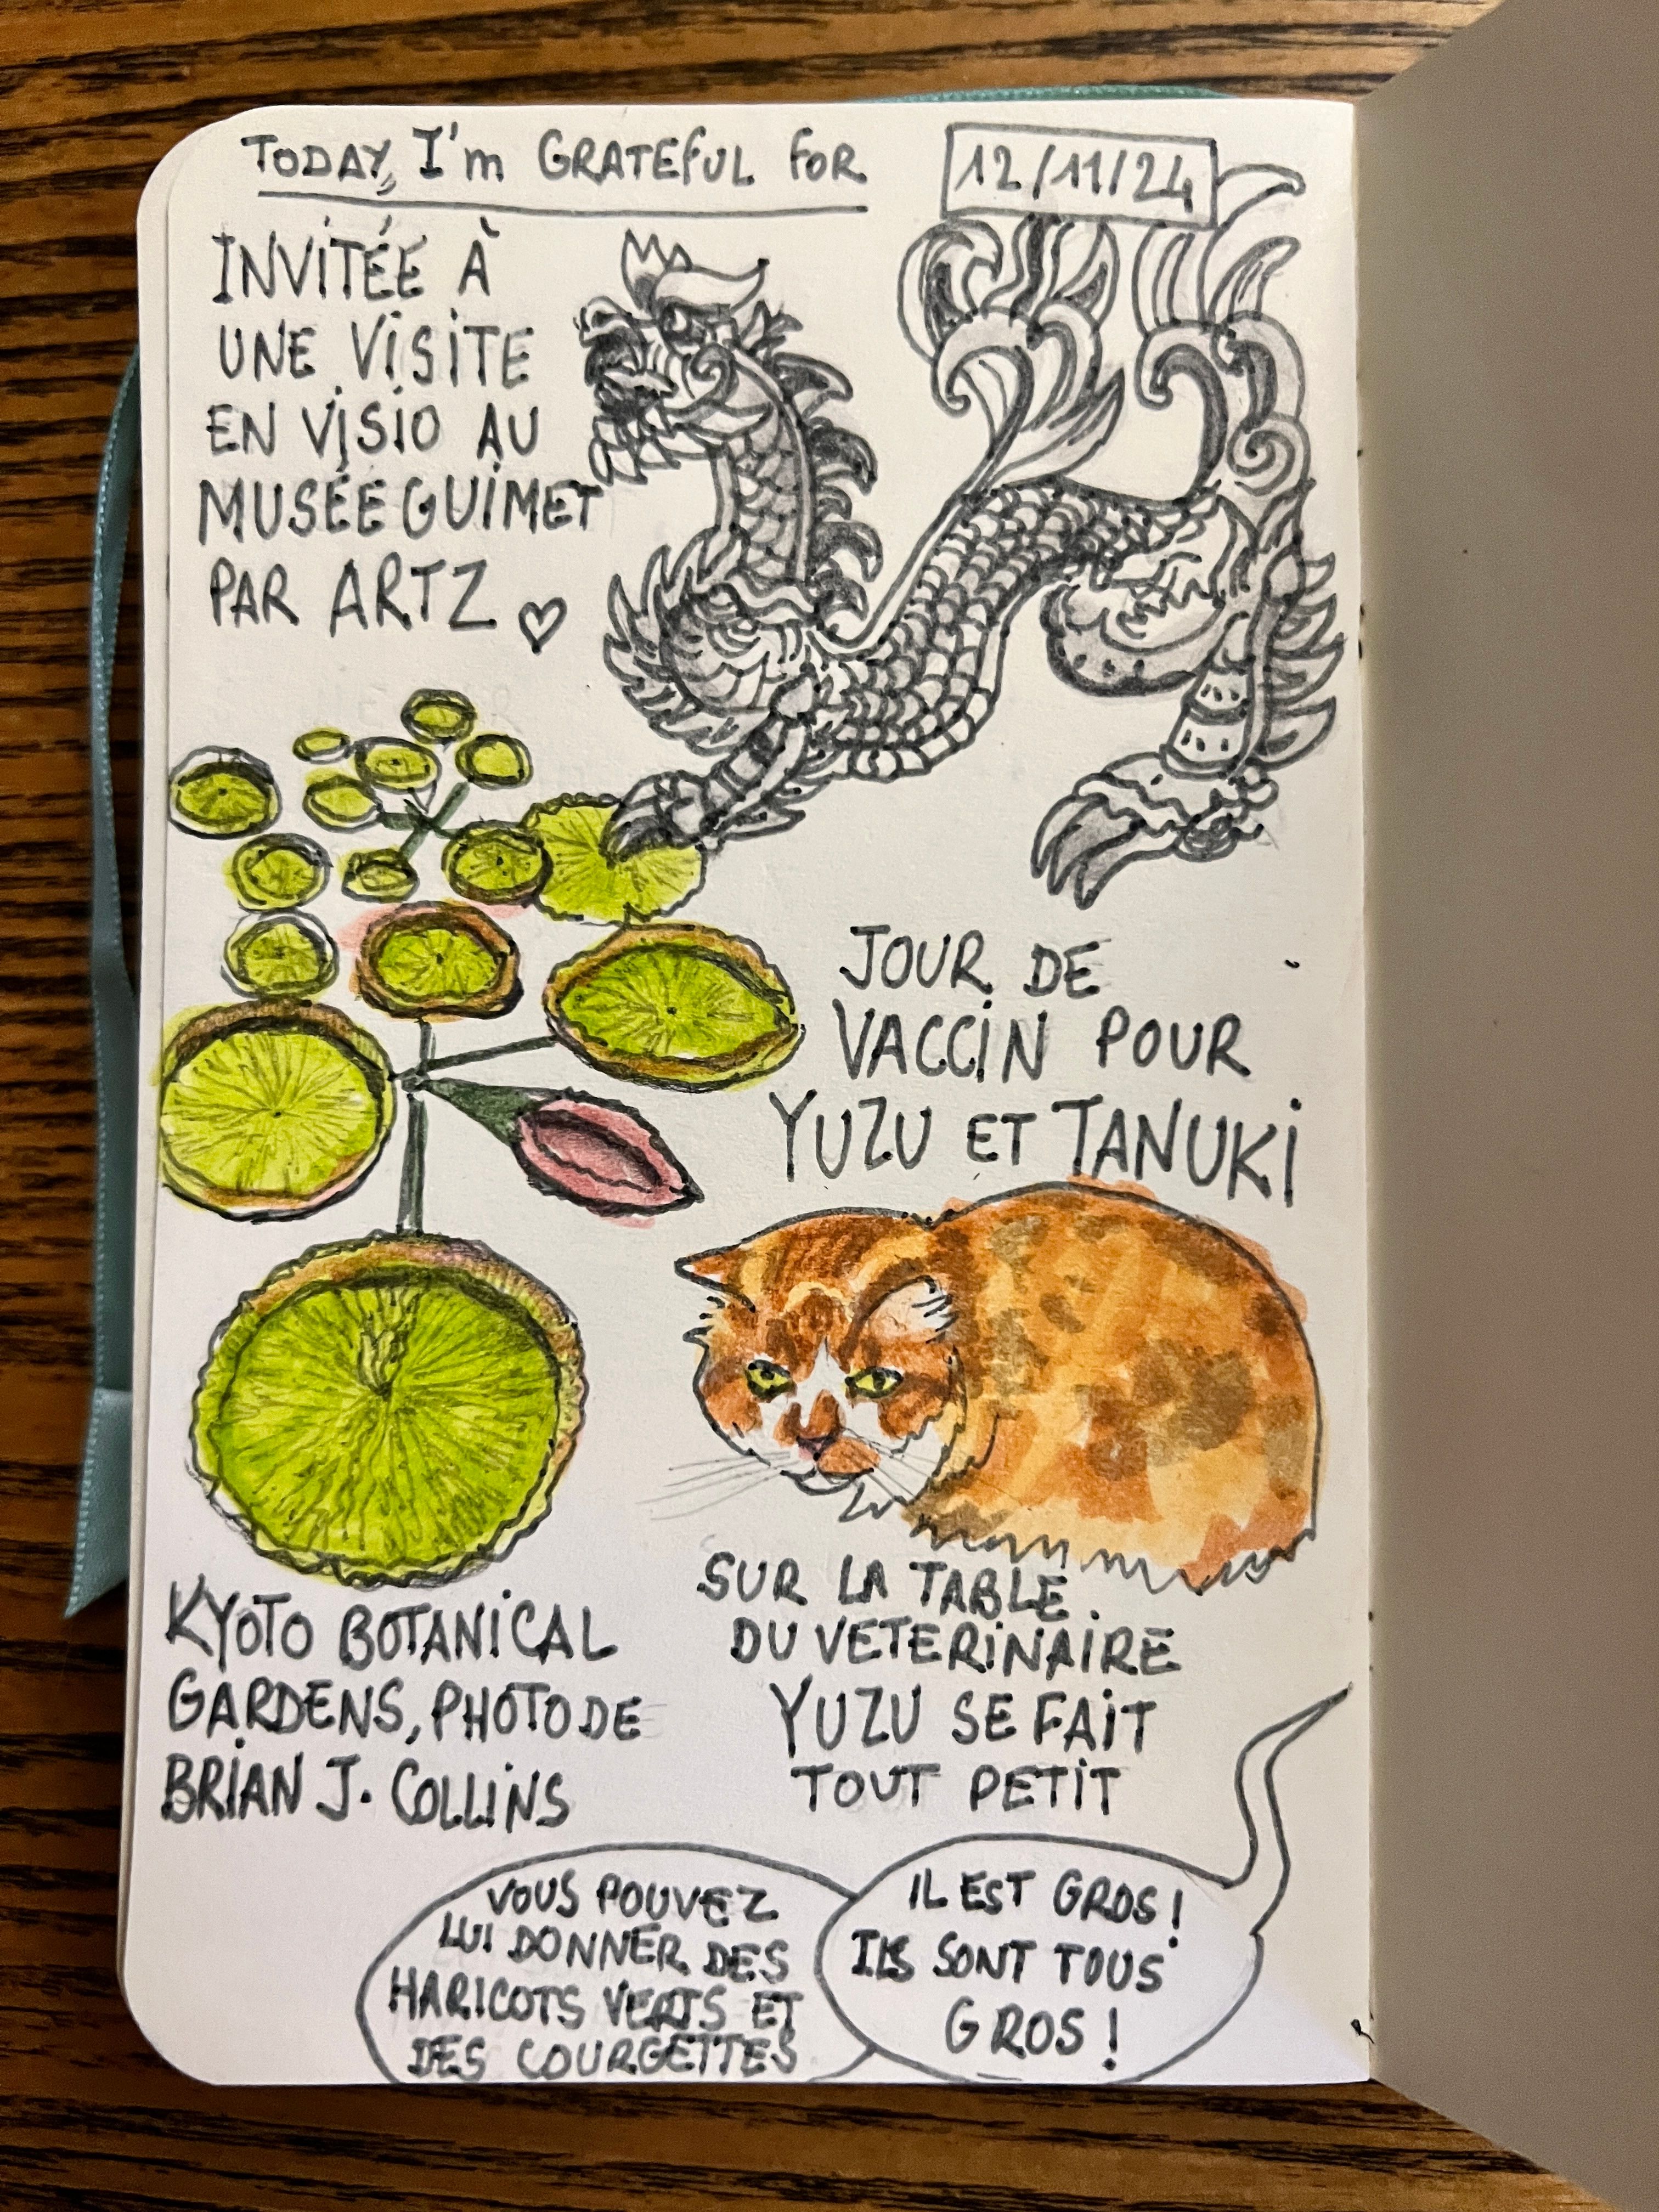 TODAY, I'm GRATEFUL FOR
12/11/24
INVITÉE À
UNE VISITE
EN VISIO AU
MUSÉE GUIMET
PAR ARTZ ♡
JOUR DE
VACCIN POUR
YUZU ET TANUKI
KYOTO BOTANICAL
GARDENS, PHOTO DE
BRIAN J. COLLINS
SUR LA TABLE
DU VETERINAIRE
YUZU SE FAIT
TOUT PETIT
VOUS POUVEZ
LUI DONNER DES
HARICOTS VERTS ET
DES COURGETTES
IL EST GROS !
ILS SONT TOUS
GROS !